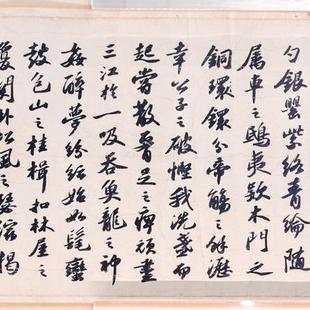 勺銀罌紫絡青綸隨
属車之鴟夷欵木門之
銅環鐶分帝觴之餘瀝
幸公子之破慳我洗盞而
起嘗散腰足之痺頑盡
三江於一吸吞魚龍之神
姦醉夢紛紜始如髦蠻
鼓包山之桂楫扣林屋之
瓊關卧松風之瑟縮揭